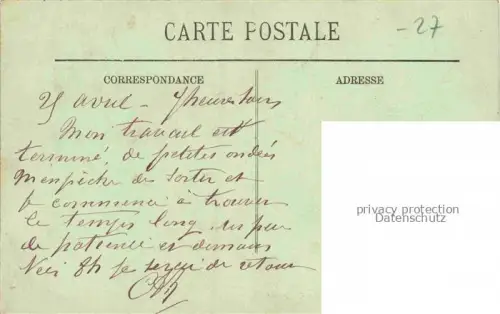 CARTE POSTALE
-27
CORRESPONDANCE
ADRESSE
25 avril - 7 heures soir
Mon travail est
terminé, de petites ondées
m'empêche de sortir et
je commence à trouver
le temps long, un peu
de patience et demain
vers 8h je serai de retour
privacy protection
Datenschutz